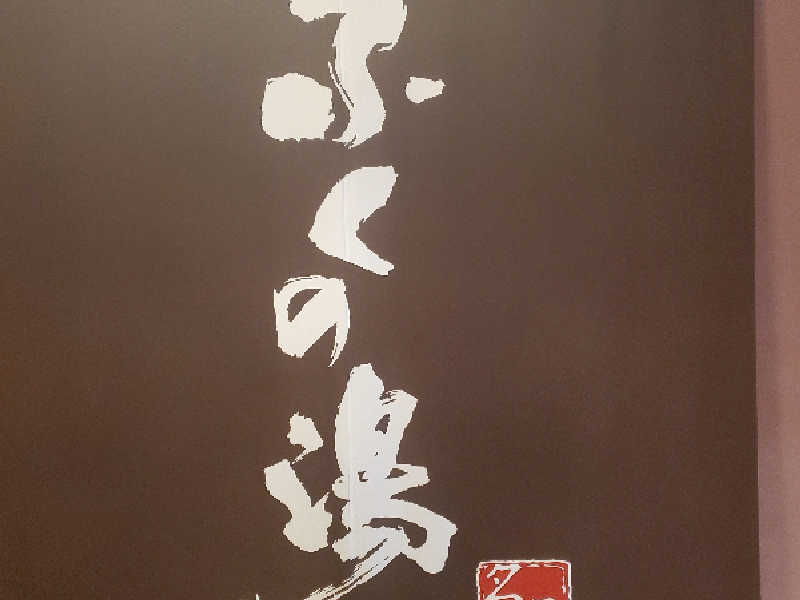 ふくの湯